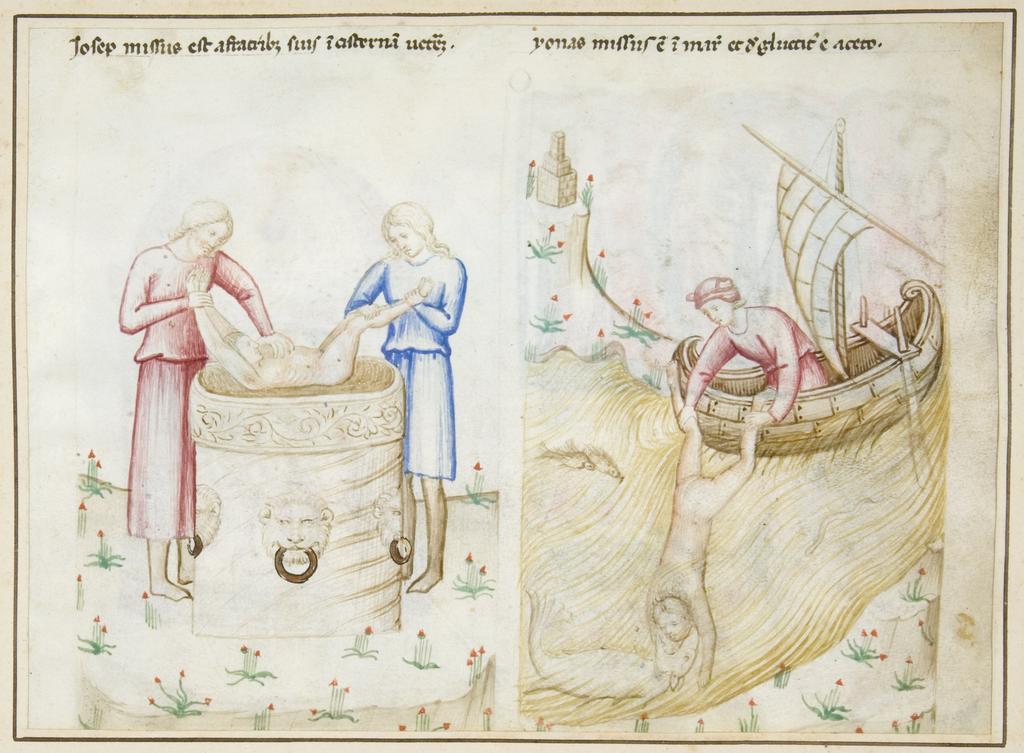 Josep missus est a fratribꝫ suis ī cisternā ueterꝫ.
yonas missus ē ī mari et d͛gluttit᷒ a ceto.